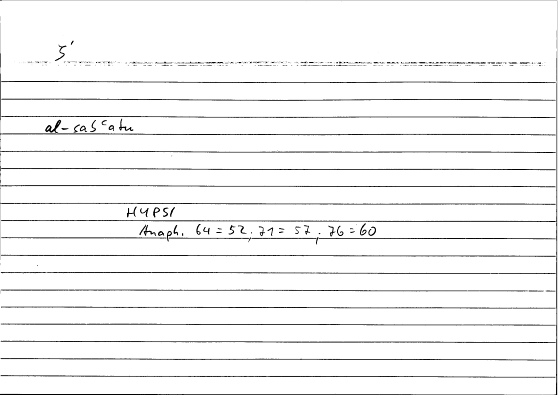 ζ'
al-sabᶜatu
HYPSI
Anaph. 64 = 52, 71 = 57, 76 = 60